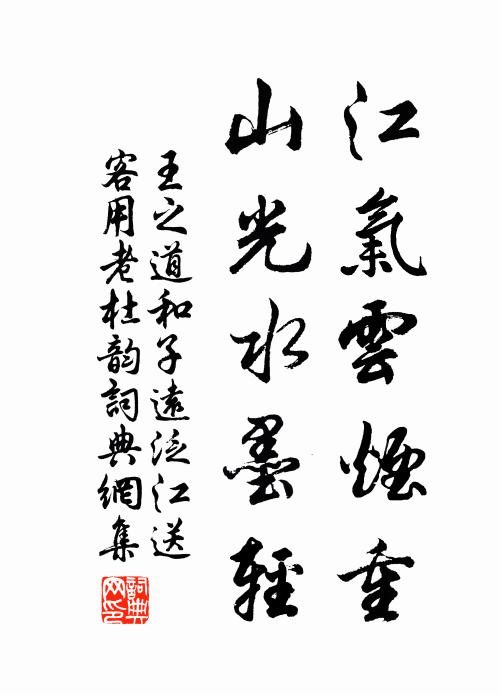 江氣雲煙重
山光水墨輕
王之道和子遠泛江送
客用老杜韵詞典網集
詞典
網印